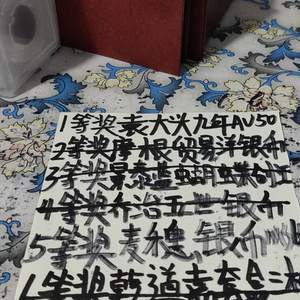 1等奖袁大头九年AU50
2等奖摩根贸易洋银币
3等奖景泰蓝蝴蝶
4等奖乔治五世银币
5等奖麦穗银币
等奖乾道元宝合